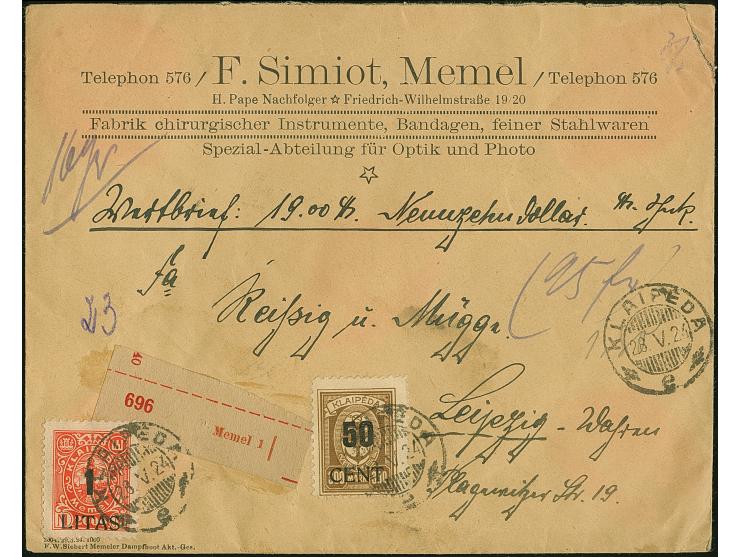 Telephon 576 / F. Simiot, Memel / Telephon 576
H. Pape Nachfolger ☆ Friedrich-Wilhelmstraße 19/20
Fabrik chirurgischer Instrumente, Bandagen, feiner Stahlwaren
Spezial-Abteilung für Optik und Photo
16gr
Wertbrief: 19.00 $. Neunzehn dollar.
Fa
Reißig u. Mügge
(95 gr
23
KLAIPĖDA
28.V.24
e
40
696
Memel 1
KLAIPĖDA
50
CENT
Leipzig - Wahren
Str. 19.
1
LITAS
F. W. Siebert Memeler Dampfboot Akt.-Ges.